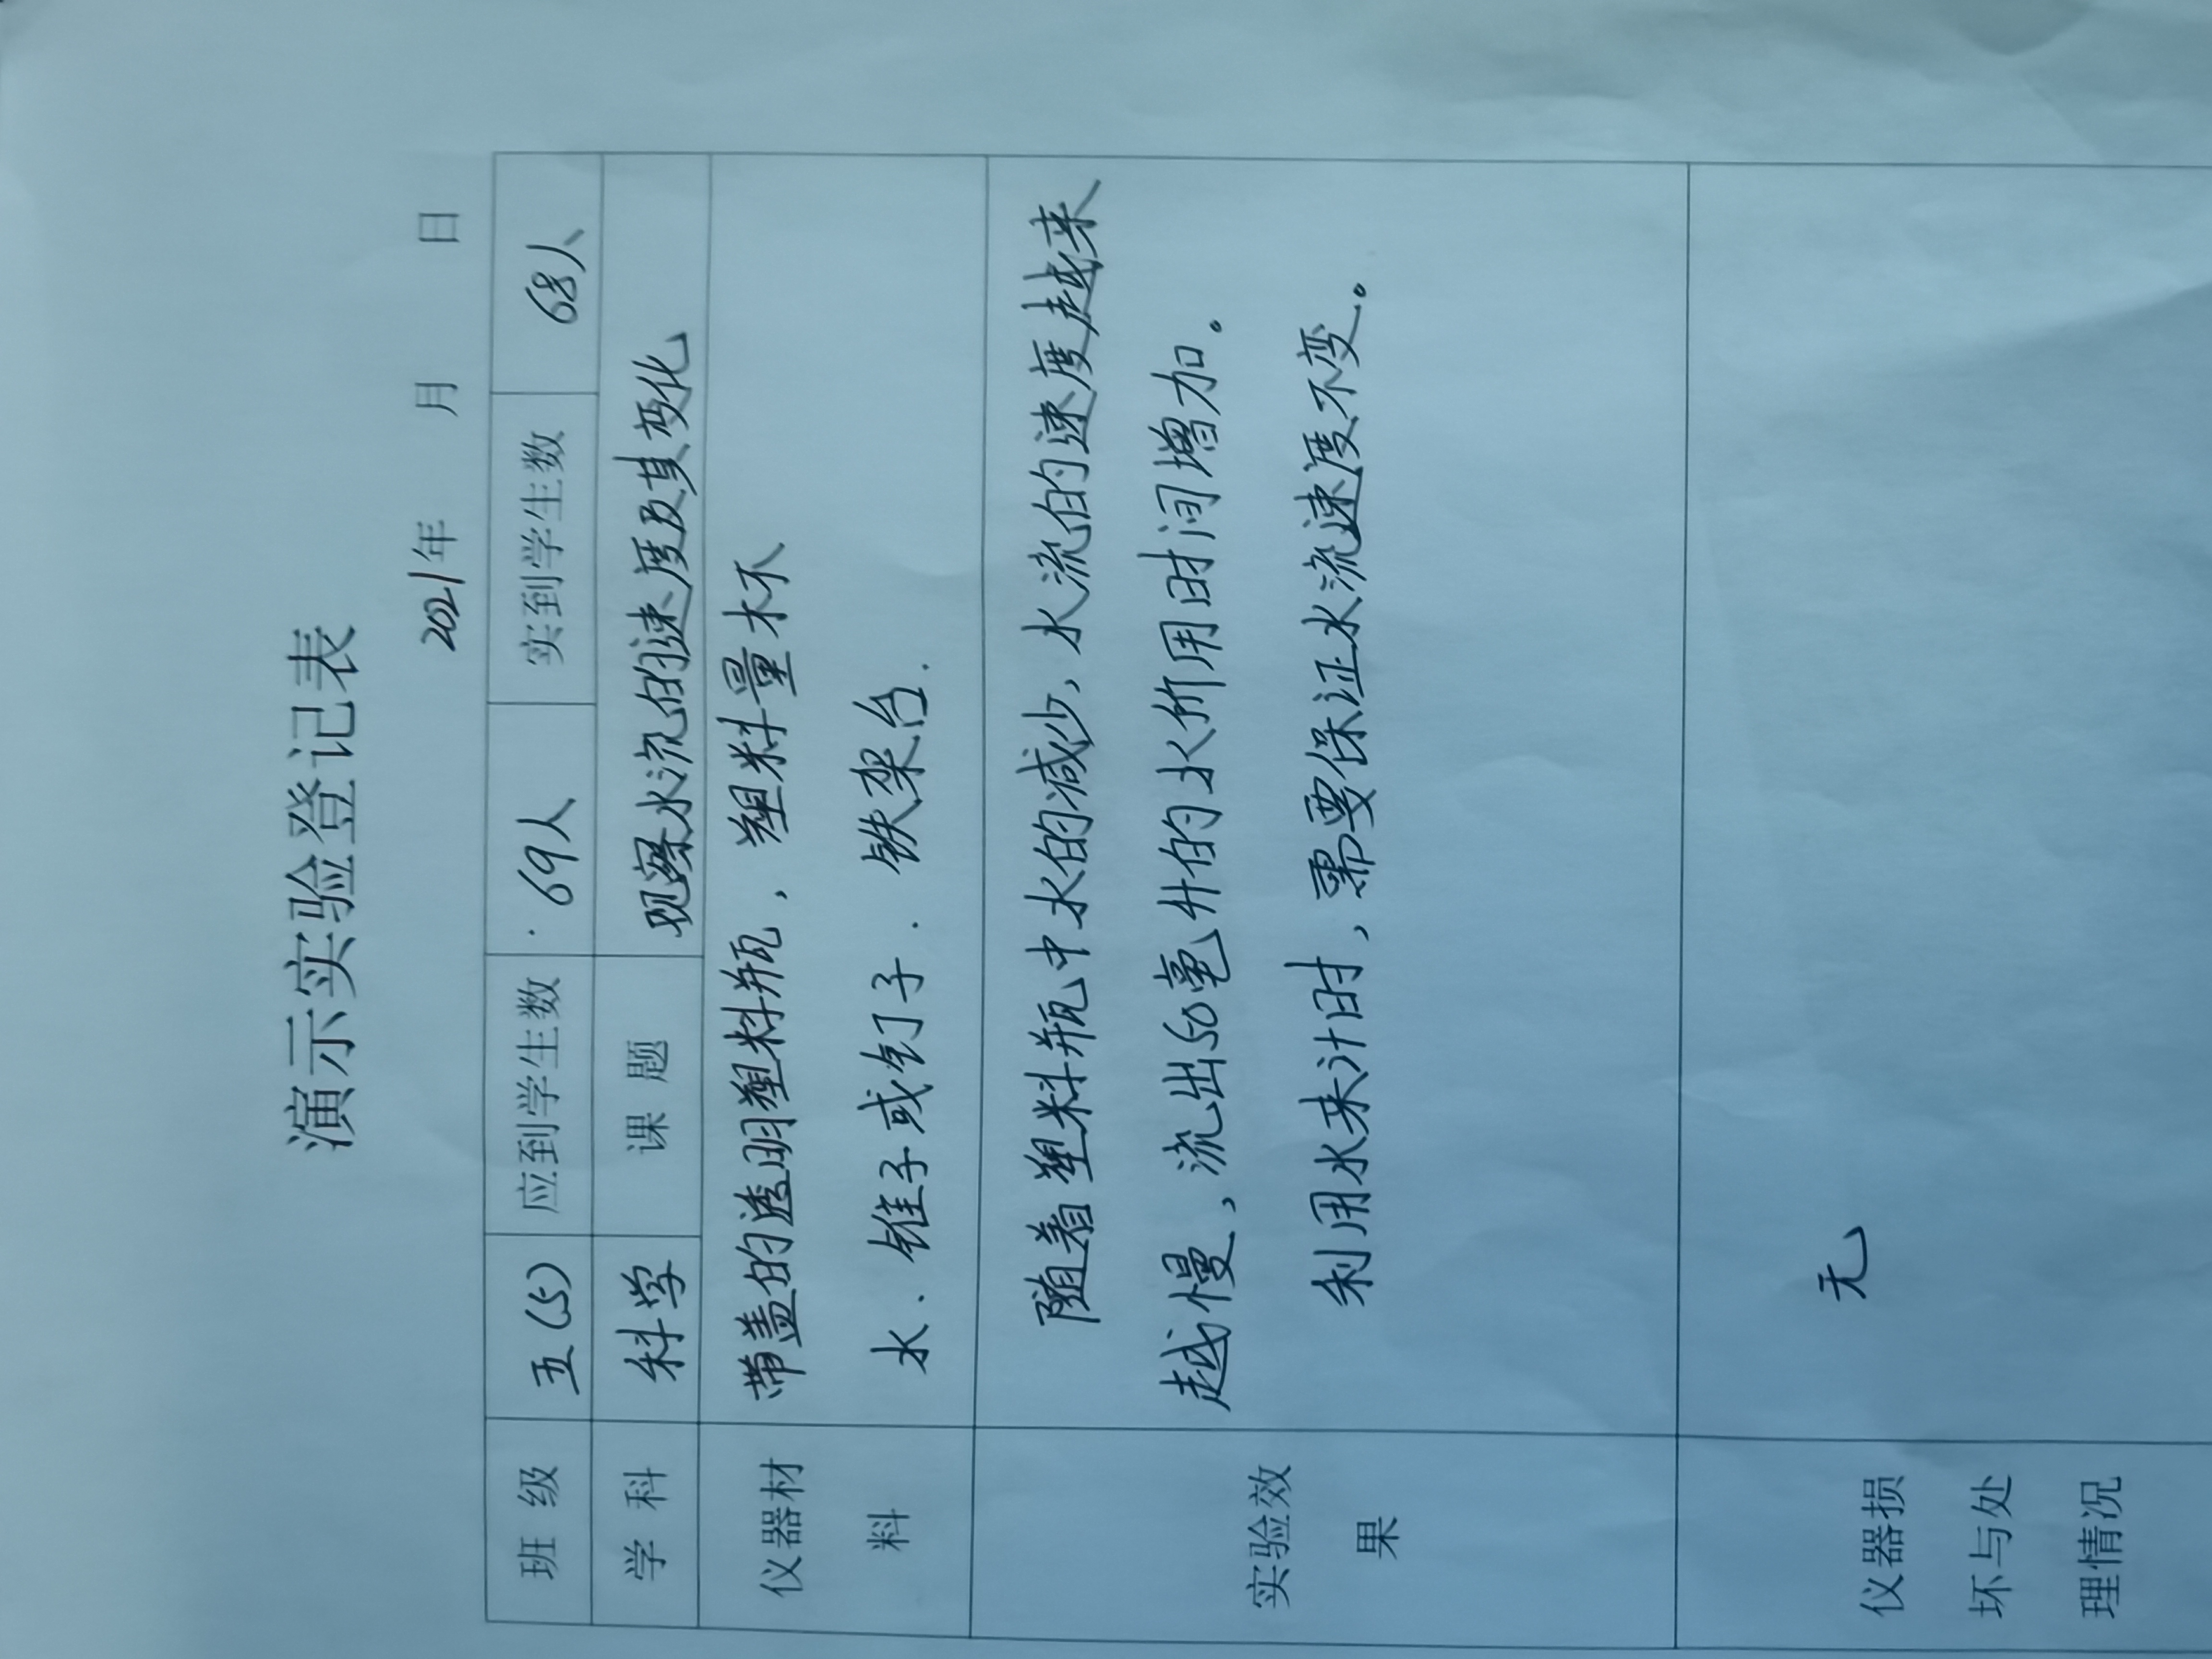 演示实验登记表
2021年 月 日
班 级 五(5) 应到学生数 69人 实到学生数 68人
学 科 科学 课 题 观察水流的速度及其变化
仪器材料
带盖的透明塑料瓶，塑料量杯
水、锥子或钉子．铁架台．
实验效果
随着塑料瓶中水的减少，水流的速度越来
越慢，流出50毫升的水所用时间增加。
利用水来计时，需要保证水流速度不变。
仪器损
坏与处
理情况
无